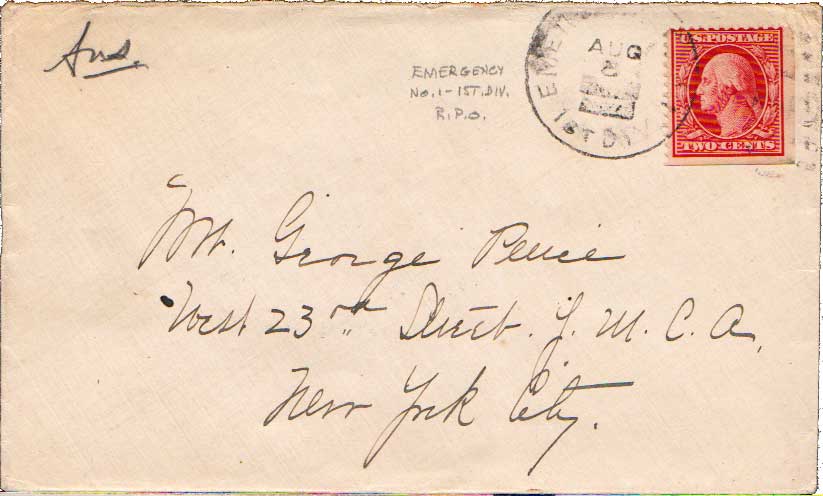 Ans.
EMERGENCY
NO. 1 - 1ST. DIV.
R.P.O.
AUG
2
1ST DIV
U.S. POSTAGE
TWO CENTS
Mr. George Peuce
West 23rd Street. Y. M. C. A.
New York City.